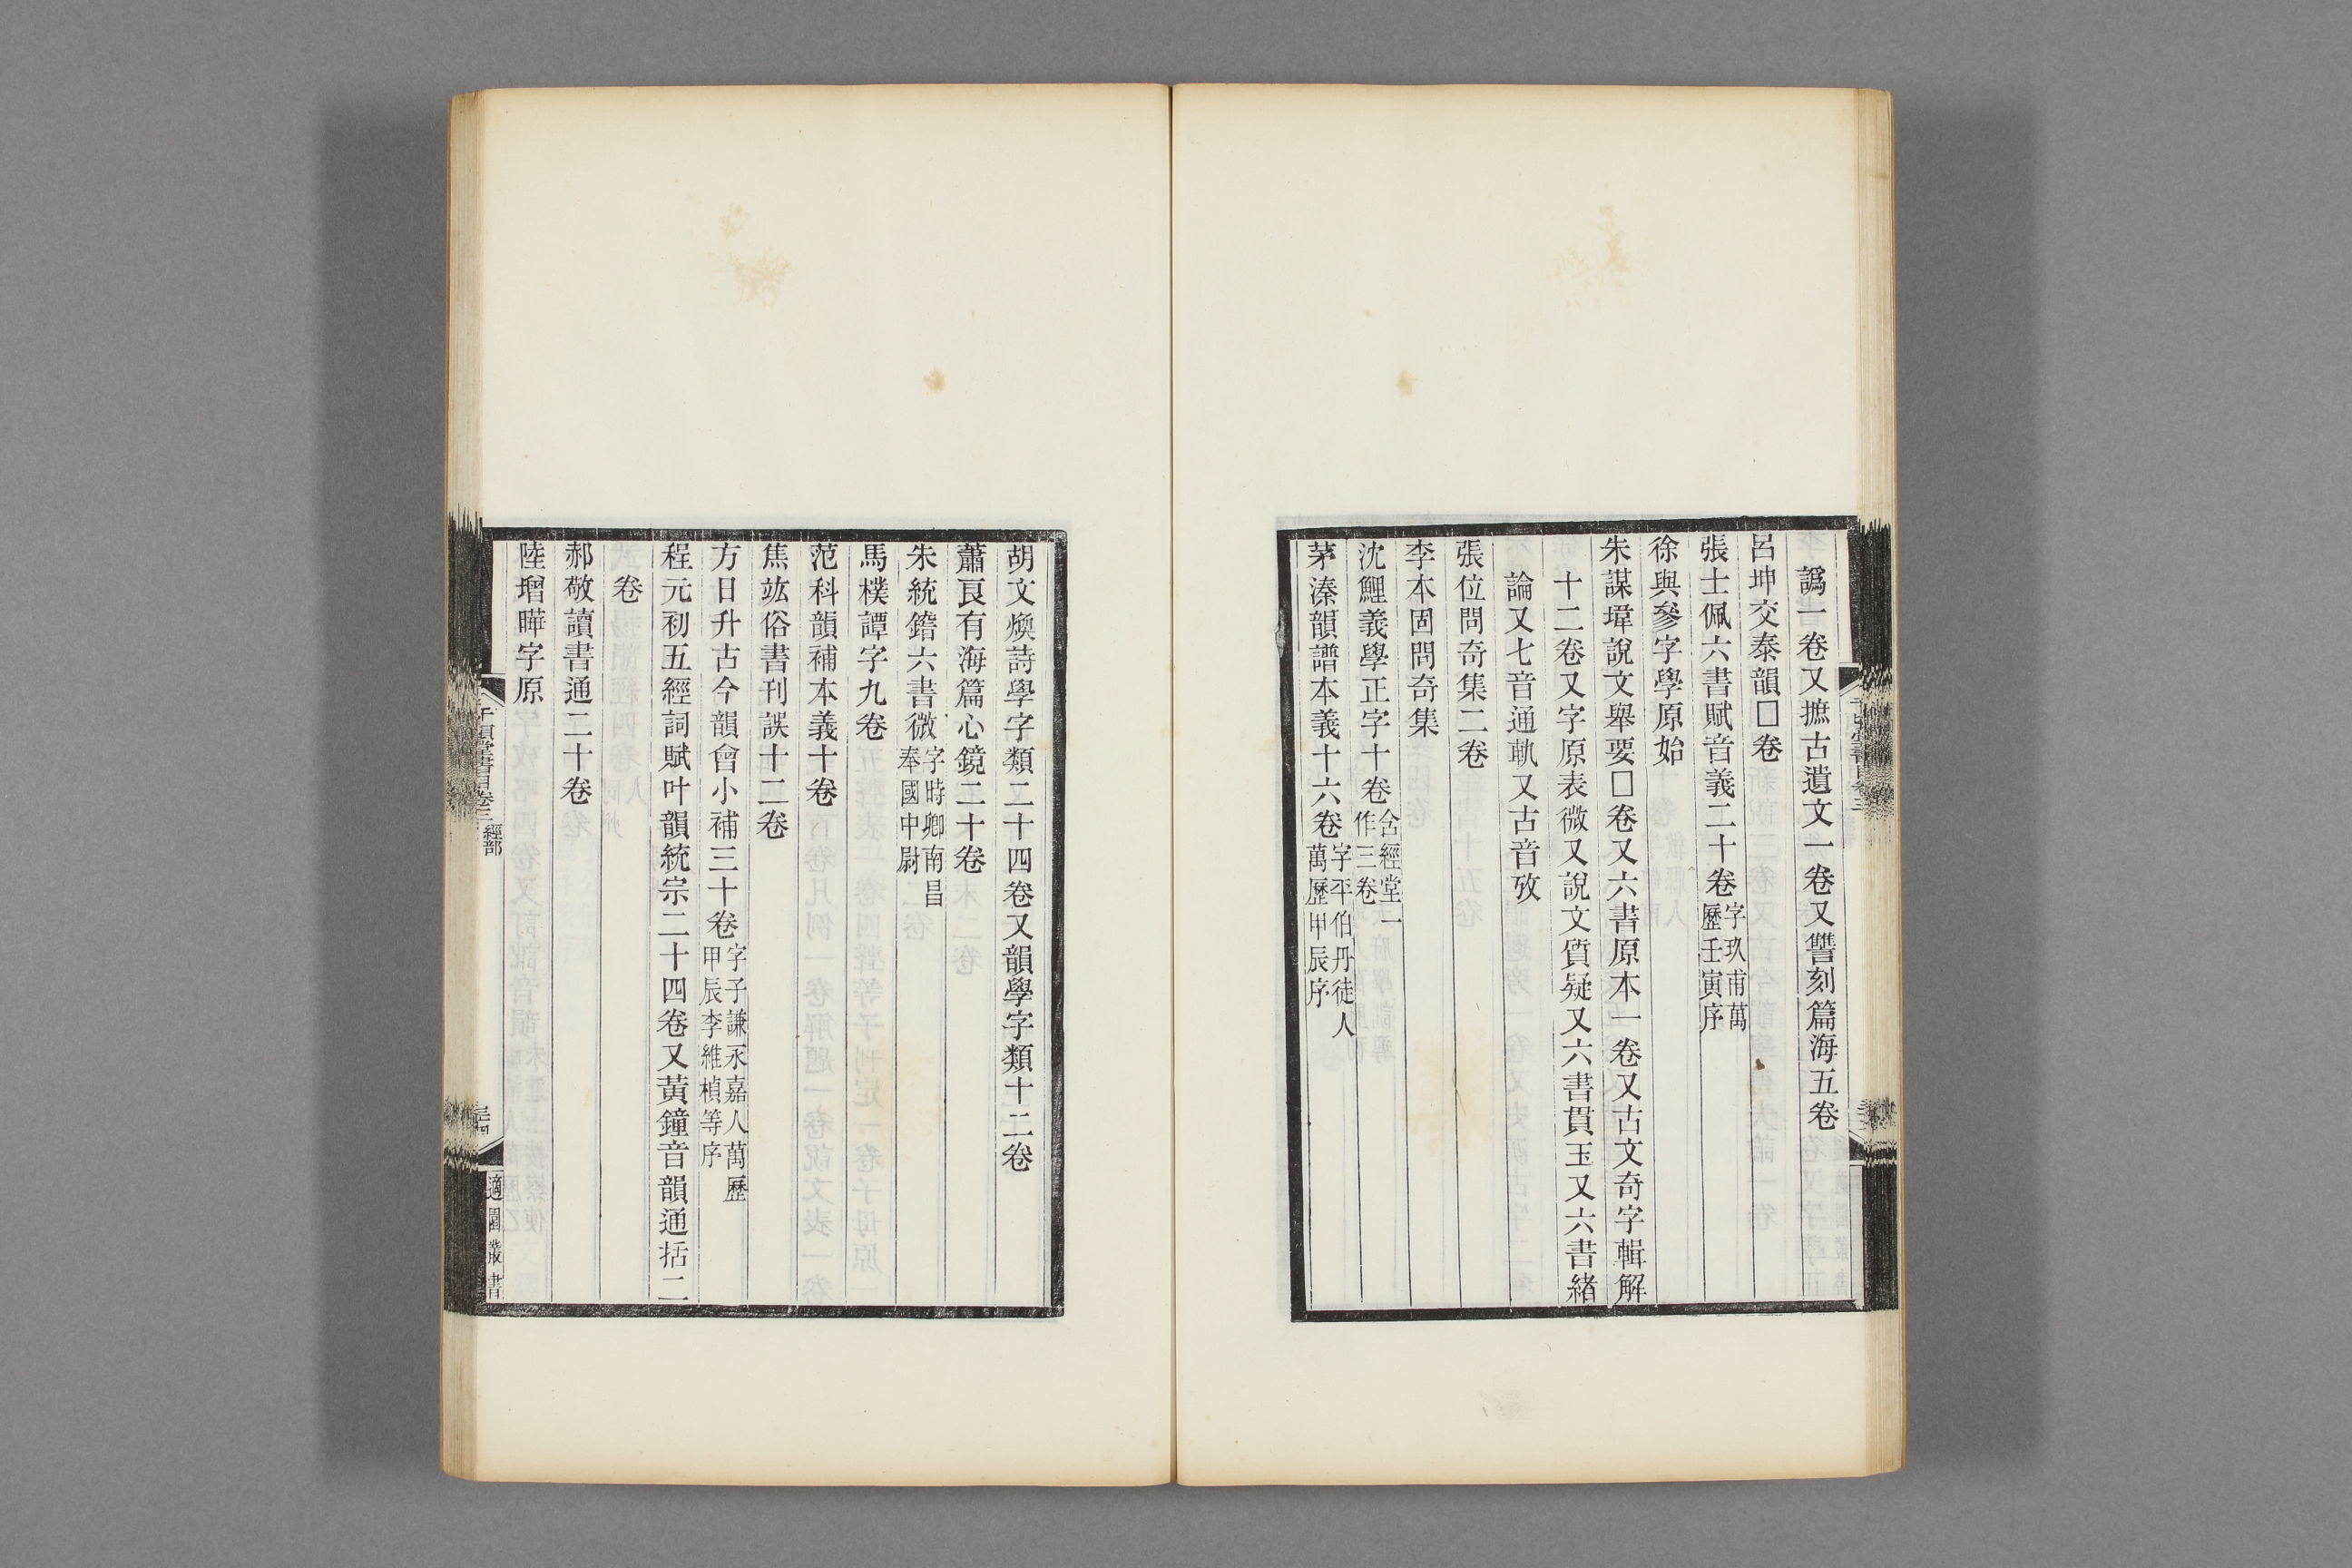 譌一卷又摭古遺文一卷又讐刻篇海五卷
呂坤交泰韻□卷
張士佩六書賦音義二十卷字玖甫萬
歷壬寅序
徐與參字學原始
朱謀㙔說文舉要□卷又六書原本一卷又古文奇字輯解
十二卷又字原表微又說文質疑又六書貫玉又六書緒
論又七音通軌又古音攷
張位問奇集二卷
李本固問奇集
沈鯉義學正字十卷含經堂一
作三卷
茅溱韻譜本義十六卷字平伯丹徒人
萬歷甲辰序
胡文煥詩學字類二十四卷又韻學字類十二卷
蕭良有海篇心鏡二十卷
朱統䥧六書微字時卿南昌
奉國中尉
馬樸譚字九卷
范科韻補本義十卷
焦竑俗書刊誤十二卷
方日升古今韻會小補三十卷字子謙永嘉人萬歷
甲辰李維楨等序
程元初五經詞賦叶韻統宗二十四卷又黃鐘音韻通括二
卷
郝敬讀書通二十卷
陸增曄字原
千頃堂書目卷三 經部
適園叢書